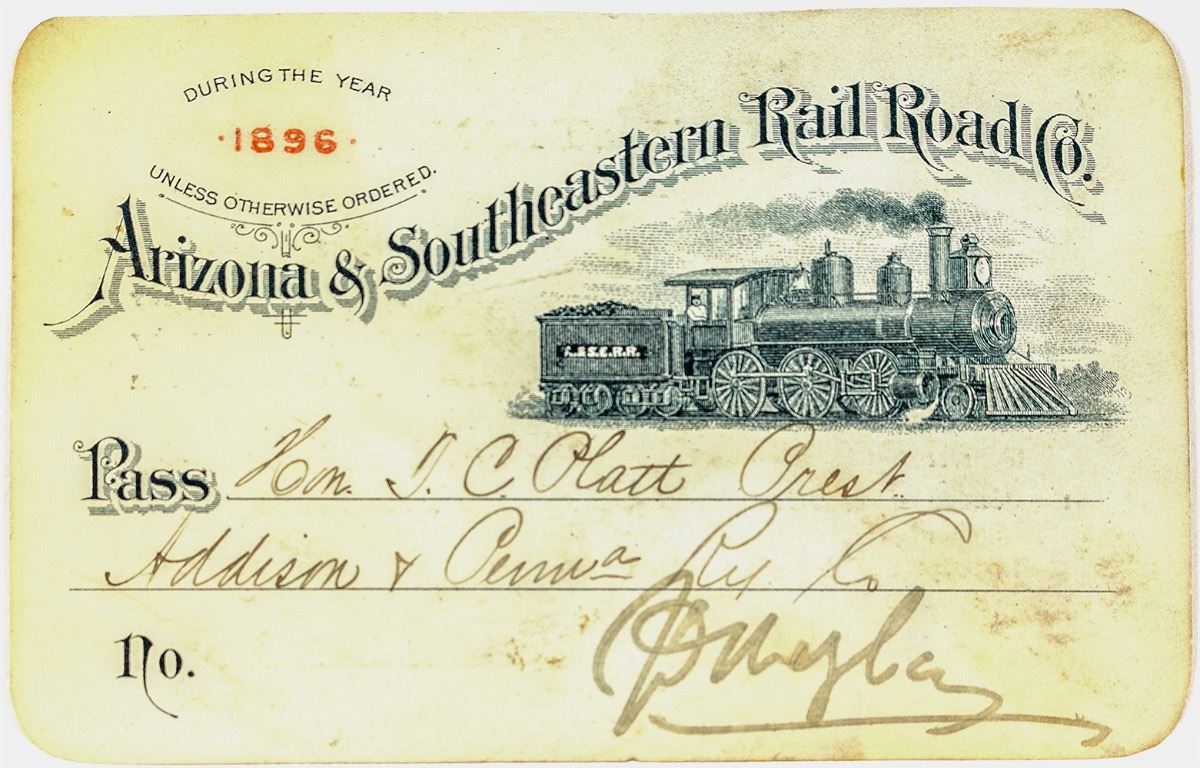 DURING THE YEAR
·1896·
UNLESS OTHERWISE ORDERED.
Arizona & Southeastern Rail Road Co.
A.&S.E.R.R.
Pass Hon. T. C. Platt Prest.
Addison & Penna Ry Co
No.